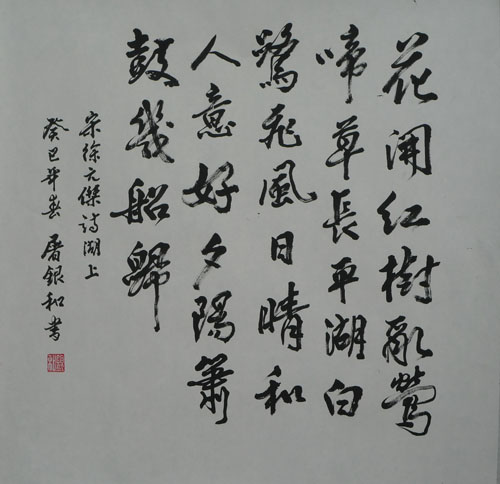 花開紅樹亂鶯
啼草長平湖白
鷺飛風日晴和
人意好夕陽簫
鼓幾船歸
宋徐元傑詩湖上
癸巳春屠銀和書